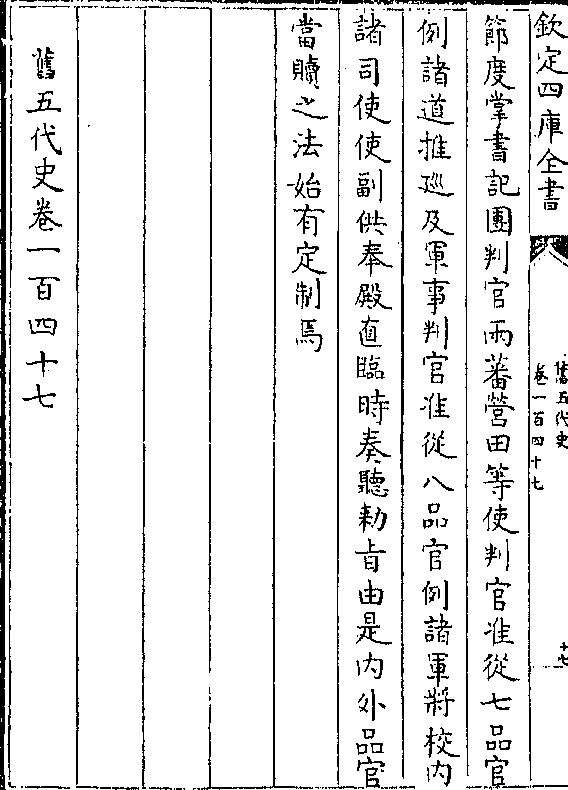 欽定四庫全書
舊五代史
卷一百四十七
十七
節度掌書記團判官兩蕃營田等使判官准從七品官
例諸道推廵及軍事判官准從八品官例諸軍將校內
諸司使使副供奉殿直臨時奏聽勅旨由是內外品官
當贖之法始有定制焉
舊五代史卷一百四十七